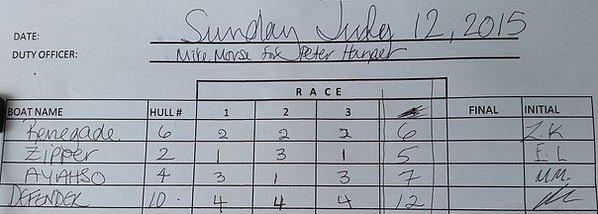 DATE: Sunday July 12, 2015
DUTY OFFICER: Mike Morse for Peter Harper
RACE
BOAT NAME HULL # 1 2 3 FINAL INITIAL
Renegade 6 2 2 2 6 Z.K
Zipper 2 1 3 1 5 E.L
AYIAHSO 4 3 1 3 7 M.M.
DEFENDER 10 4 4 4 12